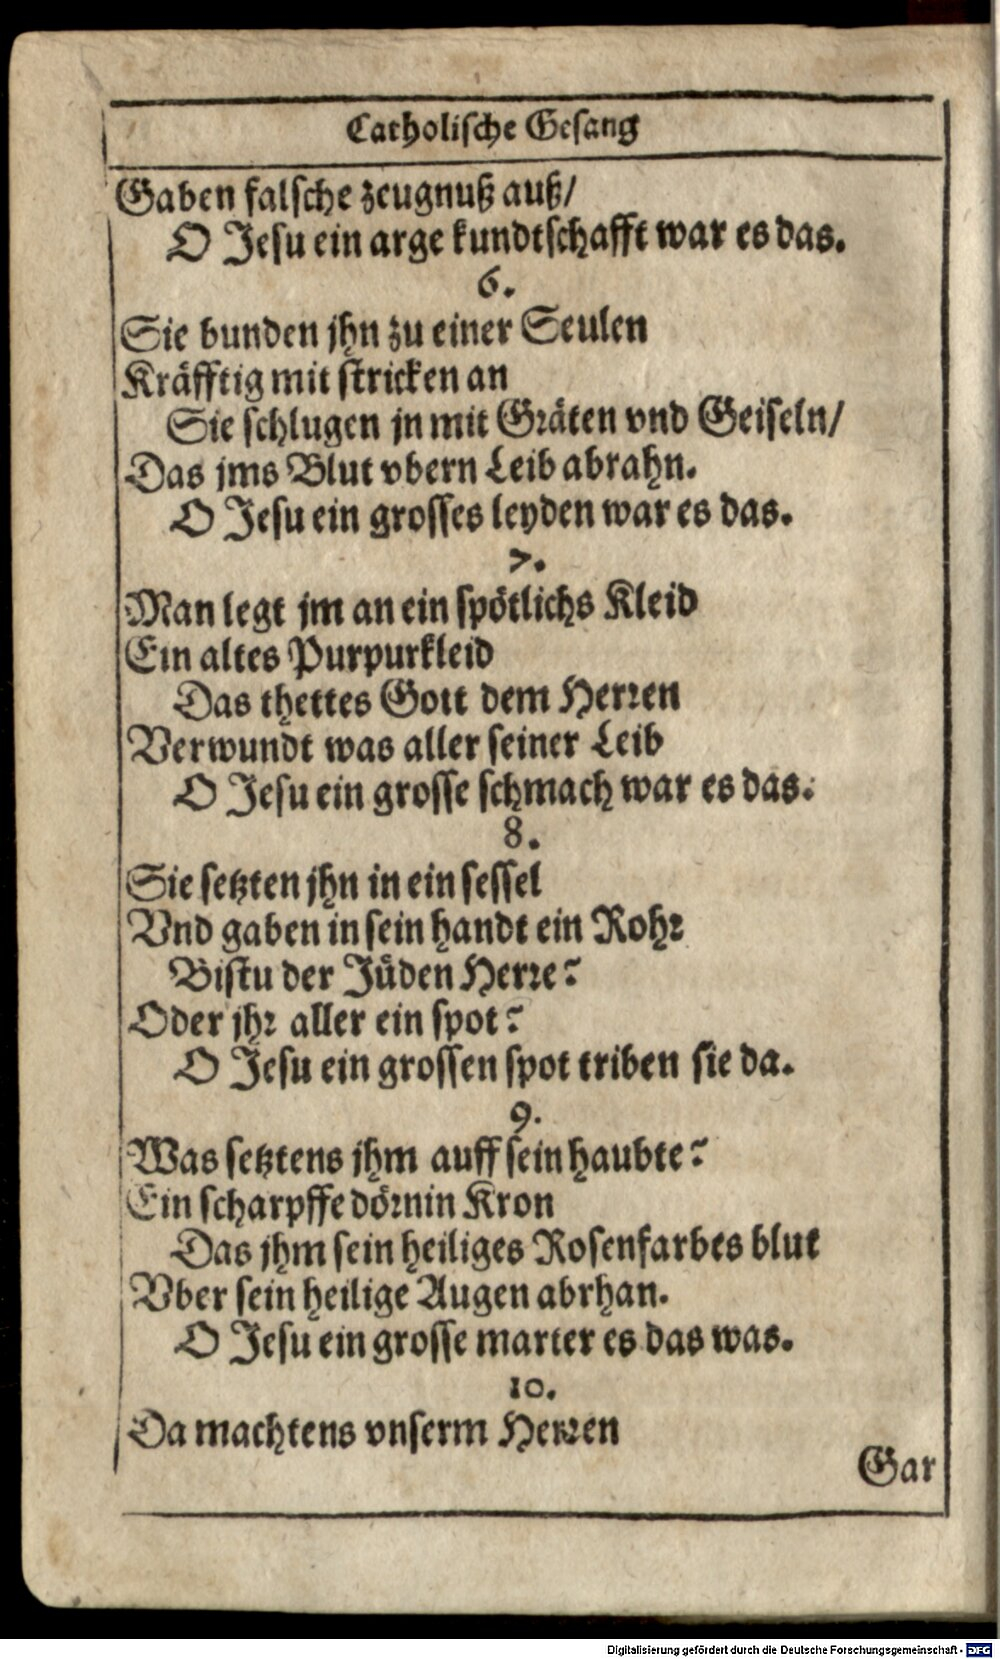 Catholische Gesang
Gaben falsche zeugnuß auß/
O Jesu ein arge kundtschafft war es das.
6.
Sie bunden jhn zu einer Seulen
Kräfftig mit stricken an
Sie schlugen jn mit Gräten vnd Geiseln/
Das jms Blut vbern Leib abrahn.
O Jesu ein grosses leyden war es das.
7.
Man legt jm an ein spötlichs Kleid
Ein altes Purpurkleid
Das thettes Gott dem Herren
Verwundt was aller seiner Leib
O Jesu ein grosse schmach war es das.
8.
Sie setzten jhn in ein sessel
Vnd gaben in sein handt ein Rohr
Bistu der Jüden Herre?
Oder jhr aller ein spot?
O Jesu ein grossen spot triben sie da.
9.
Was setztens jhm auff sein haubte?
Ein scharpffe dörnin Kron
Das jhm sein heiliges Rosenfarbes blut
Vber sein heilige Augen abrhan.
O Jesu ein grosse marter es das was.
10.
Da machtens vnserm Herren
Gar
Digitalisierung gefördert durch die Deutsche Forschungsgemeinschaft - DFG